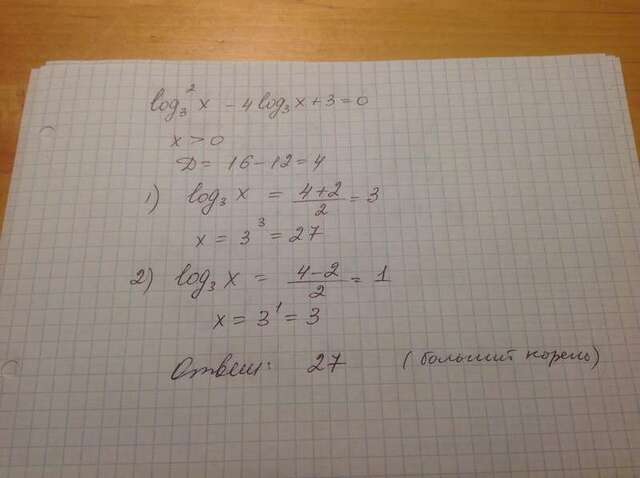 log₃² x - 4 log₃ x + 3 = 0
x > 0
D = 16 - 12 = 4
1) log₃ x = (4+2)/2 = 3
x = 3³ = 27
2) log₃ x = (4-2)/2 = 1
x = 3¹ = 3
Ответ: 27 (больший корень)